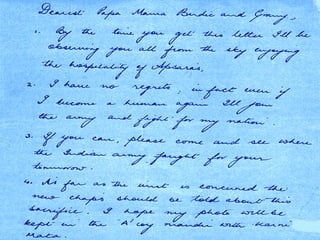 Dearest Papa Mama Birdie and Granny,
1. By the time you get this letter I'll be
observing you all from the sky enjoying
the hospitality of Apsaras.
2. I have no regrets, in fact even if
I become a human again I'll join
the army and fight for my nation.
3. If you can, please come and see where
the Indian army fought for your
tomorrow.
4. As far as the unit is concerned the
new chaps should be told about this
sacrifice. I hope my photo will be
kept in the 'A' coy mandir with Karni
Mata.